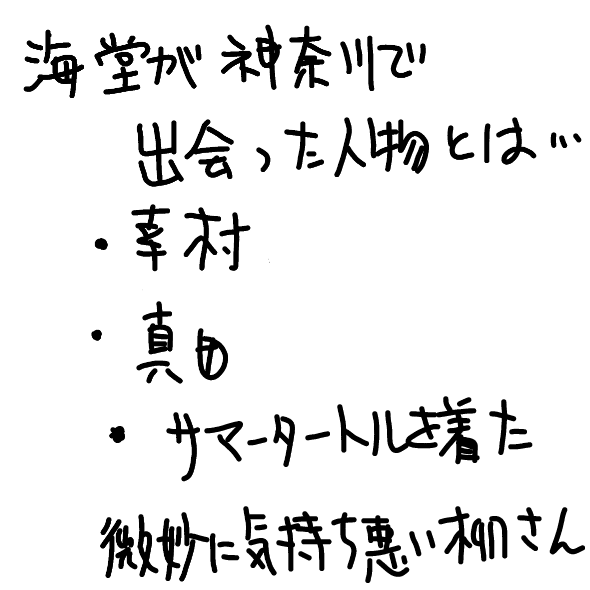 海堂が神奈川で
出会った人物とは…
・幸村
・真田
・サマータートルを着た
微妙に気持ち悪い柳さん